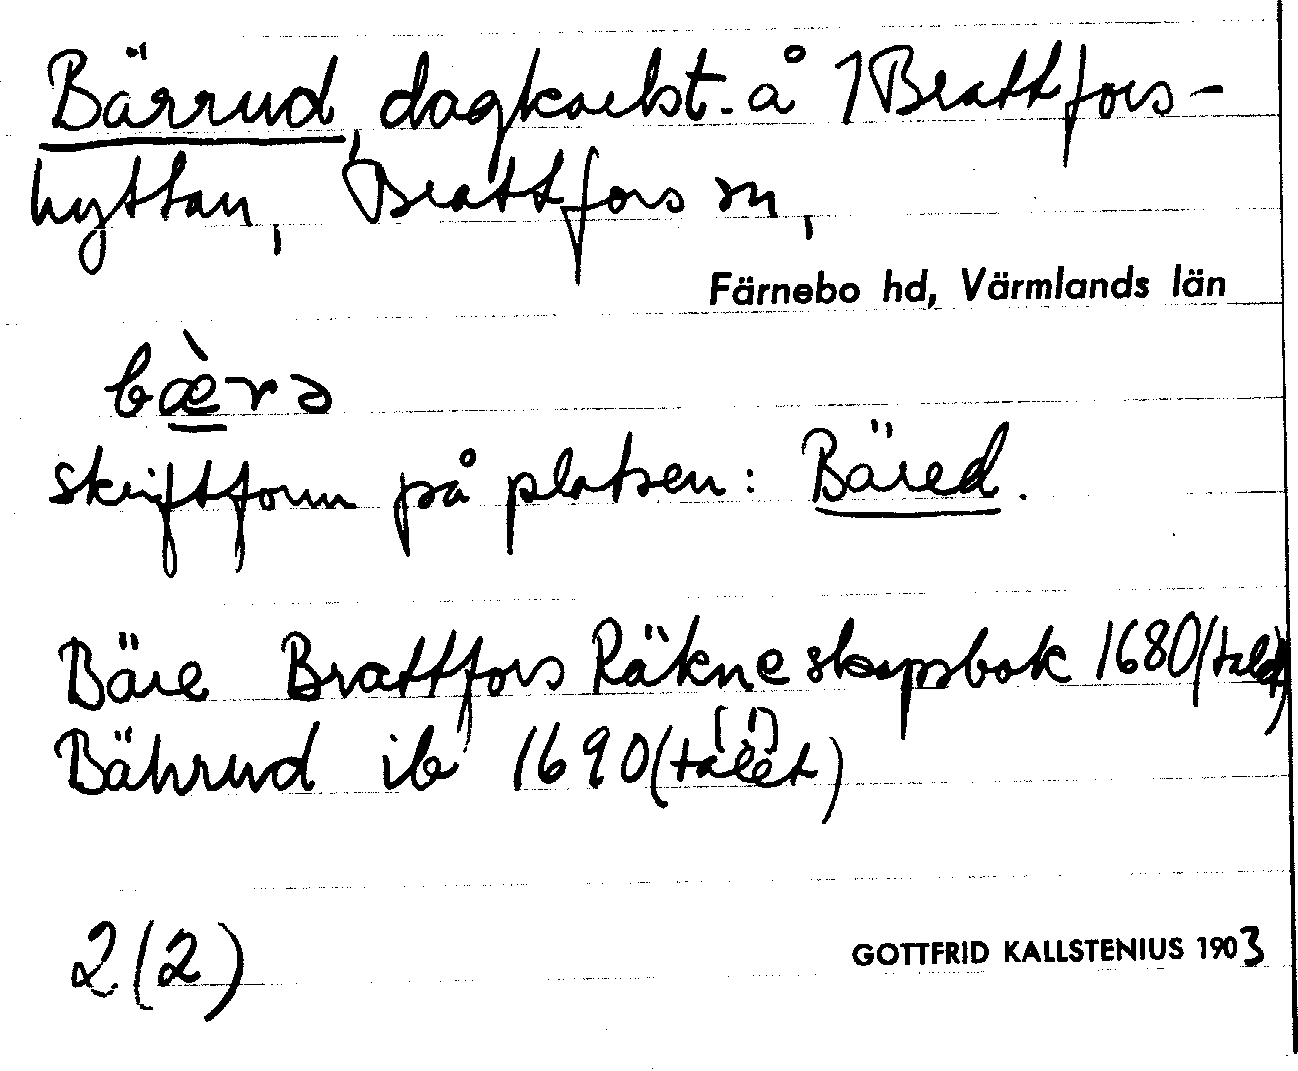 Bärrud, dagkarlst. å 1 Brattfors-
hyttan, Brattfors sn,
Färnebo hd, Värmlands län
bæ̀rə
skriftform på platsen: Bäred.
Bäre Brattfors Räkneskapsbok 1680(talet)
Bährud ib 1690(talet) (!)
2(2)
GOTTFRID KALLSTENIUS 1903